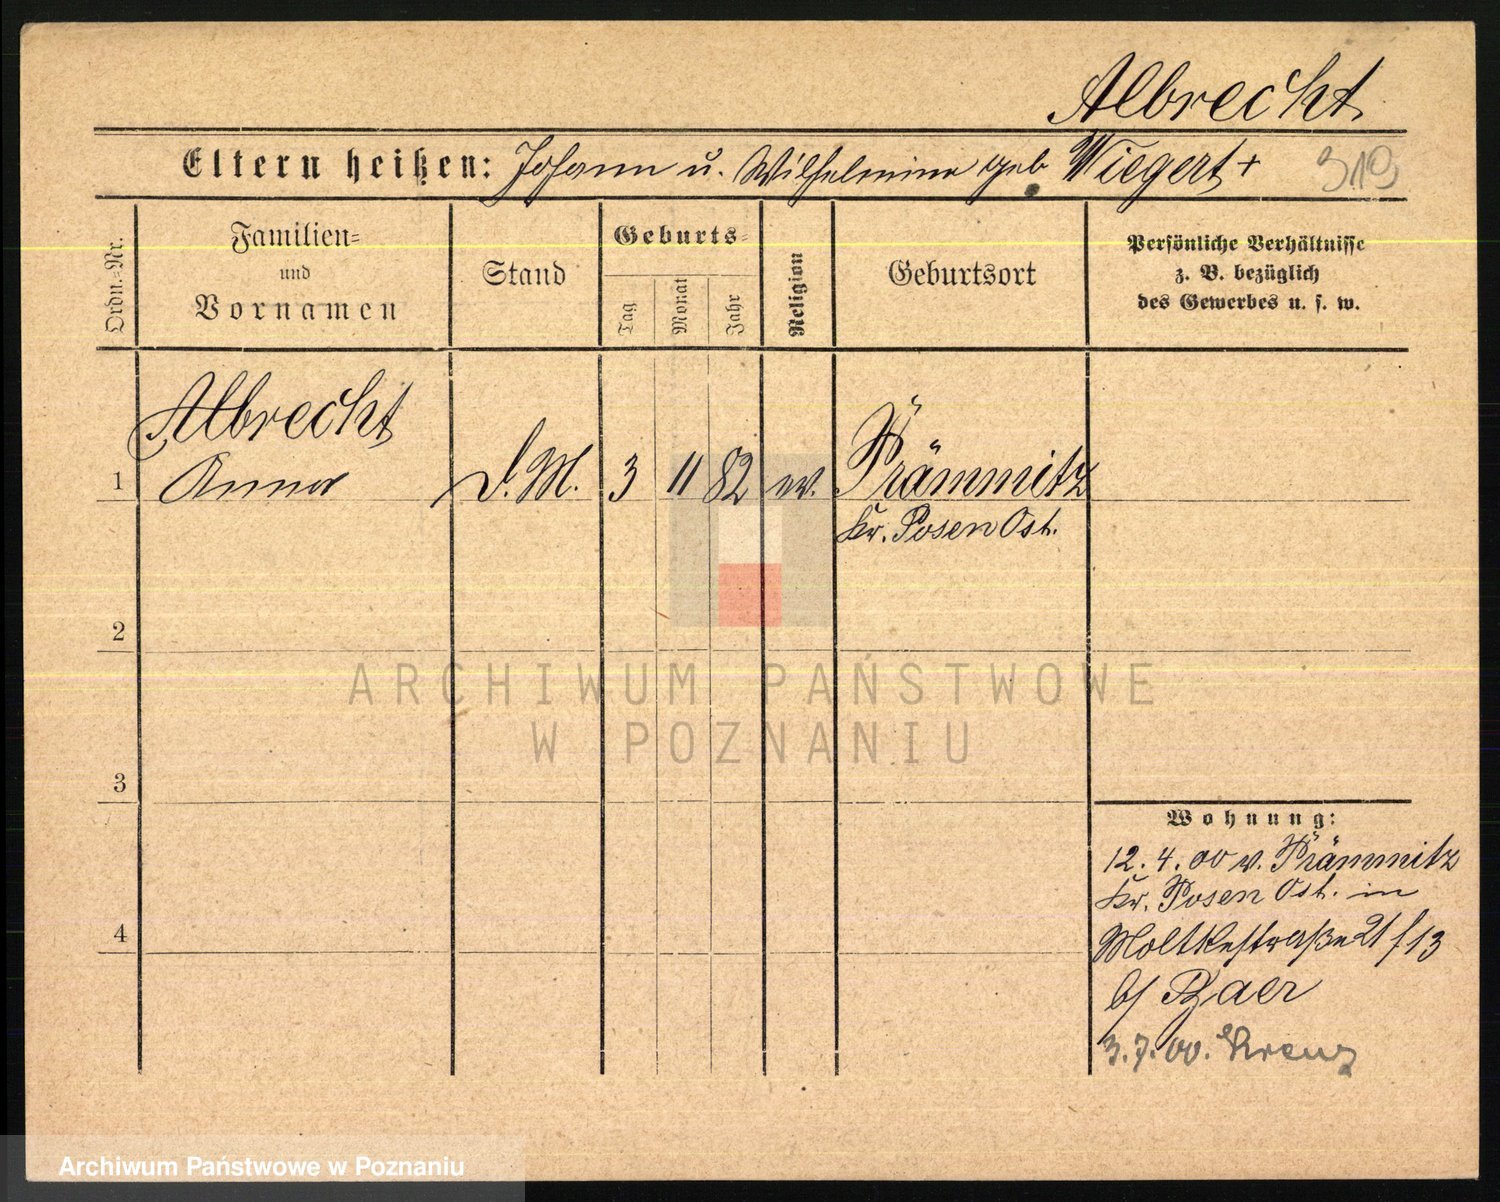 Albrecht
Eltern heißen: Johann u. Wilhelmine geb Wiegert +
319
Ordn.-Nr.
Familien-
und
Vornamen
Stand
Geburts-
Tag
Monat
Jahr
Religion
Geburtsort
Persönliche Verhältnisse
z. B. bezüglich
des Gewerbes u. s. w.
Albrecht
1 Anna D.M. 3 11 82 ev. Prämnitz
Kr. Posen Ost.
2
3
4
ARCHIWUM PAŃSTWOWE
W POZNANIU
Wohnung:
12.4.00 v. Prämnitz
Kr. Posen Ost. in
Moltkestraße 21 / 13
b/ Baer
3.7.00. Kreuz
Archiwum Państwowe w Poznaniu